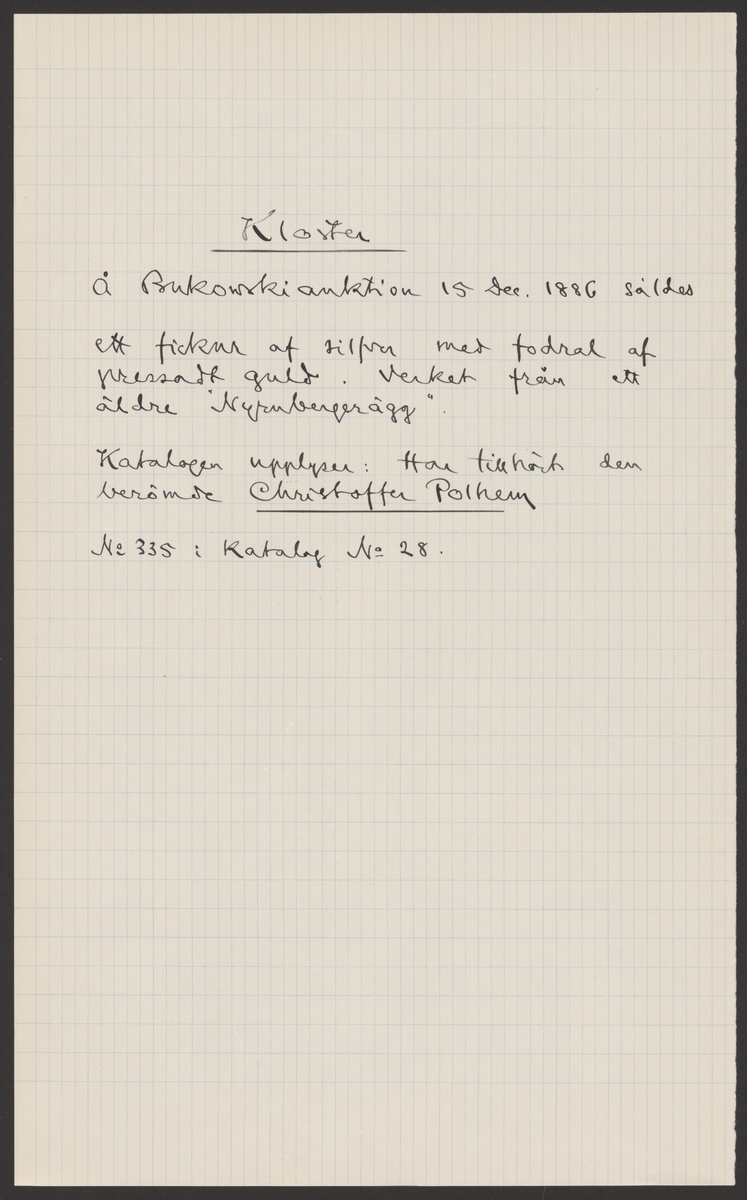 Kloster
Å Bukowskiauktion 15 Dec. 1886 såldes
ett fickur af silfver med fodral af
pressadt guld. Verket från ett
äldre "Nyrnbergerägg".
Katalogen upplyser: Har tillhört den
berömde Christoffer Polhem
No 335 i Katalog No 28.